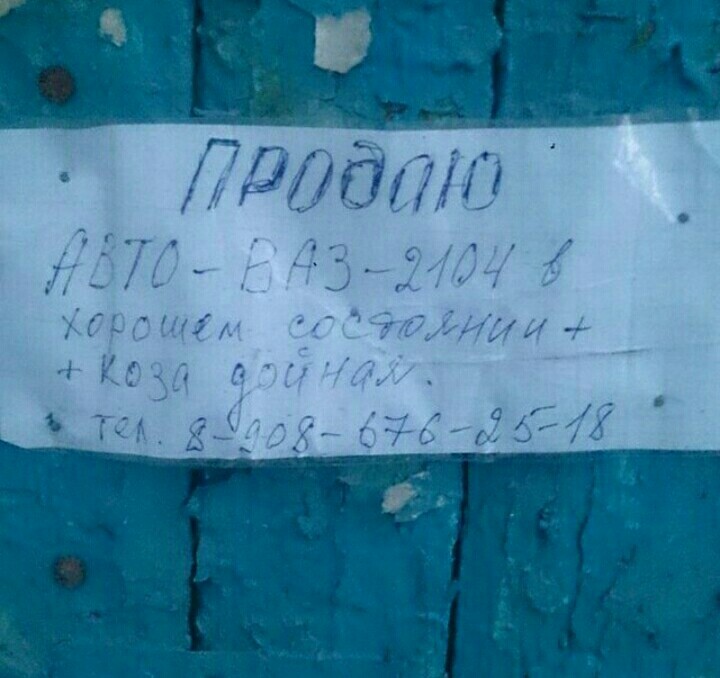 ПРОДАЮ
АВТО - ВАЗ-2104 в
хорошем состоянии +
+ коза дойная.
тел. 8-908-676-25-18